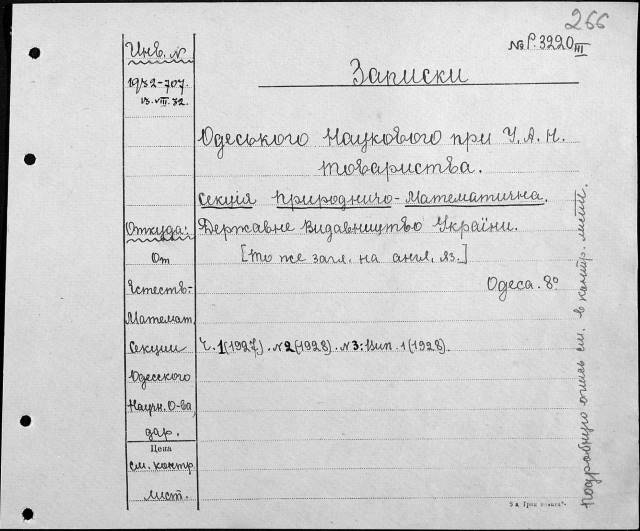 266
№ Р.3220 III
Записки
Одеського Наукового при У.А.Н.
товариства.
Секція Природничо-Математична.
Державне Видавництво України.
[то же загл. на англ. яз.]
Одеса. 8°
Ч.1(1927). №2(1928). №3: Вип. 1(1928).
Инв. №
1932-707.
13.VIII.32.
Откуда:
От
Естеств.-
Математ.
Секции
Одесского
Научн. О-ва,
дар.
Цена
см. контр.
лист.
Подробную опись см. в контр. листе.